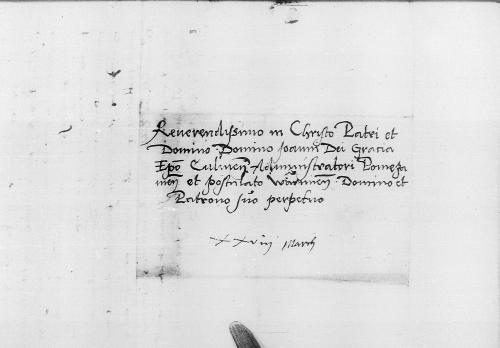 Reverendissimo in Christo Patri et
Domino Domino Joanni Dei Gracia
Epo Culmen Administratori Pomeza
nien et postulato Warmien Domino et
Patrono suo perpetuo
XXviij Marcij